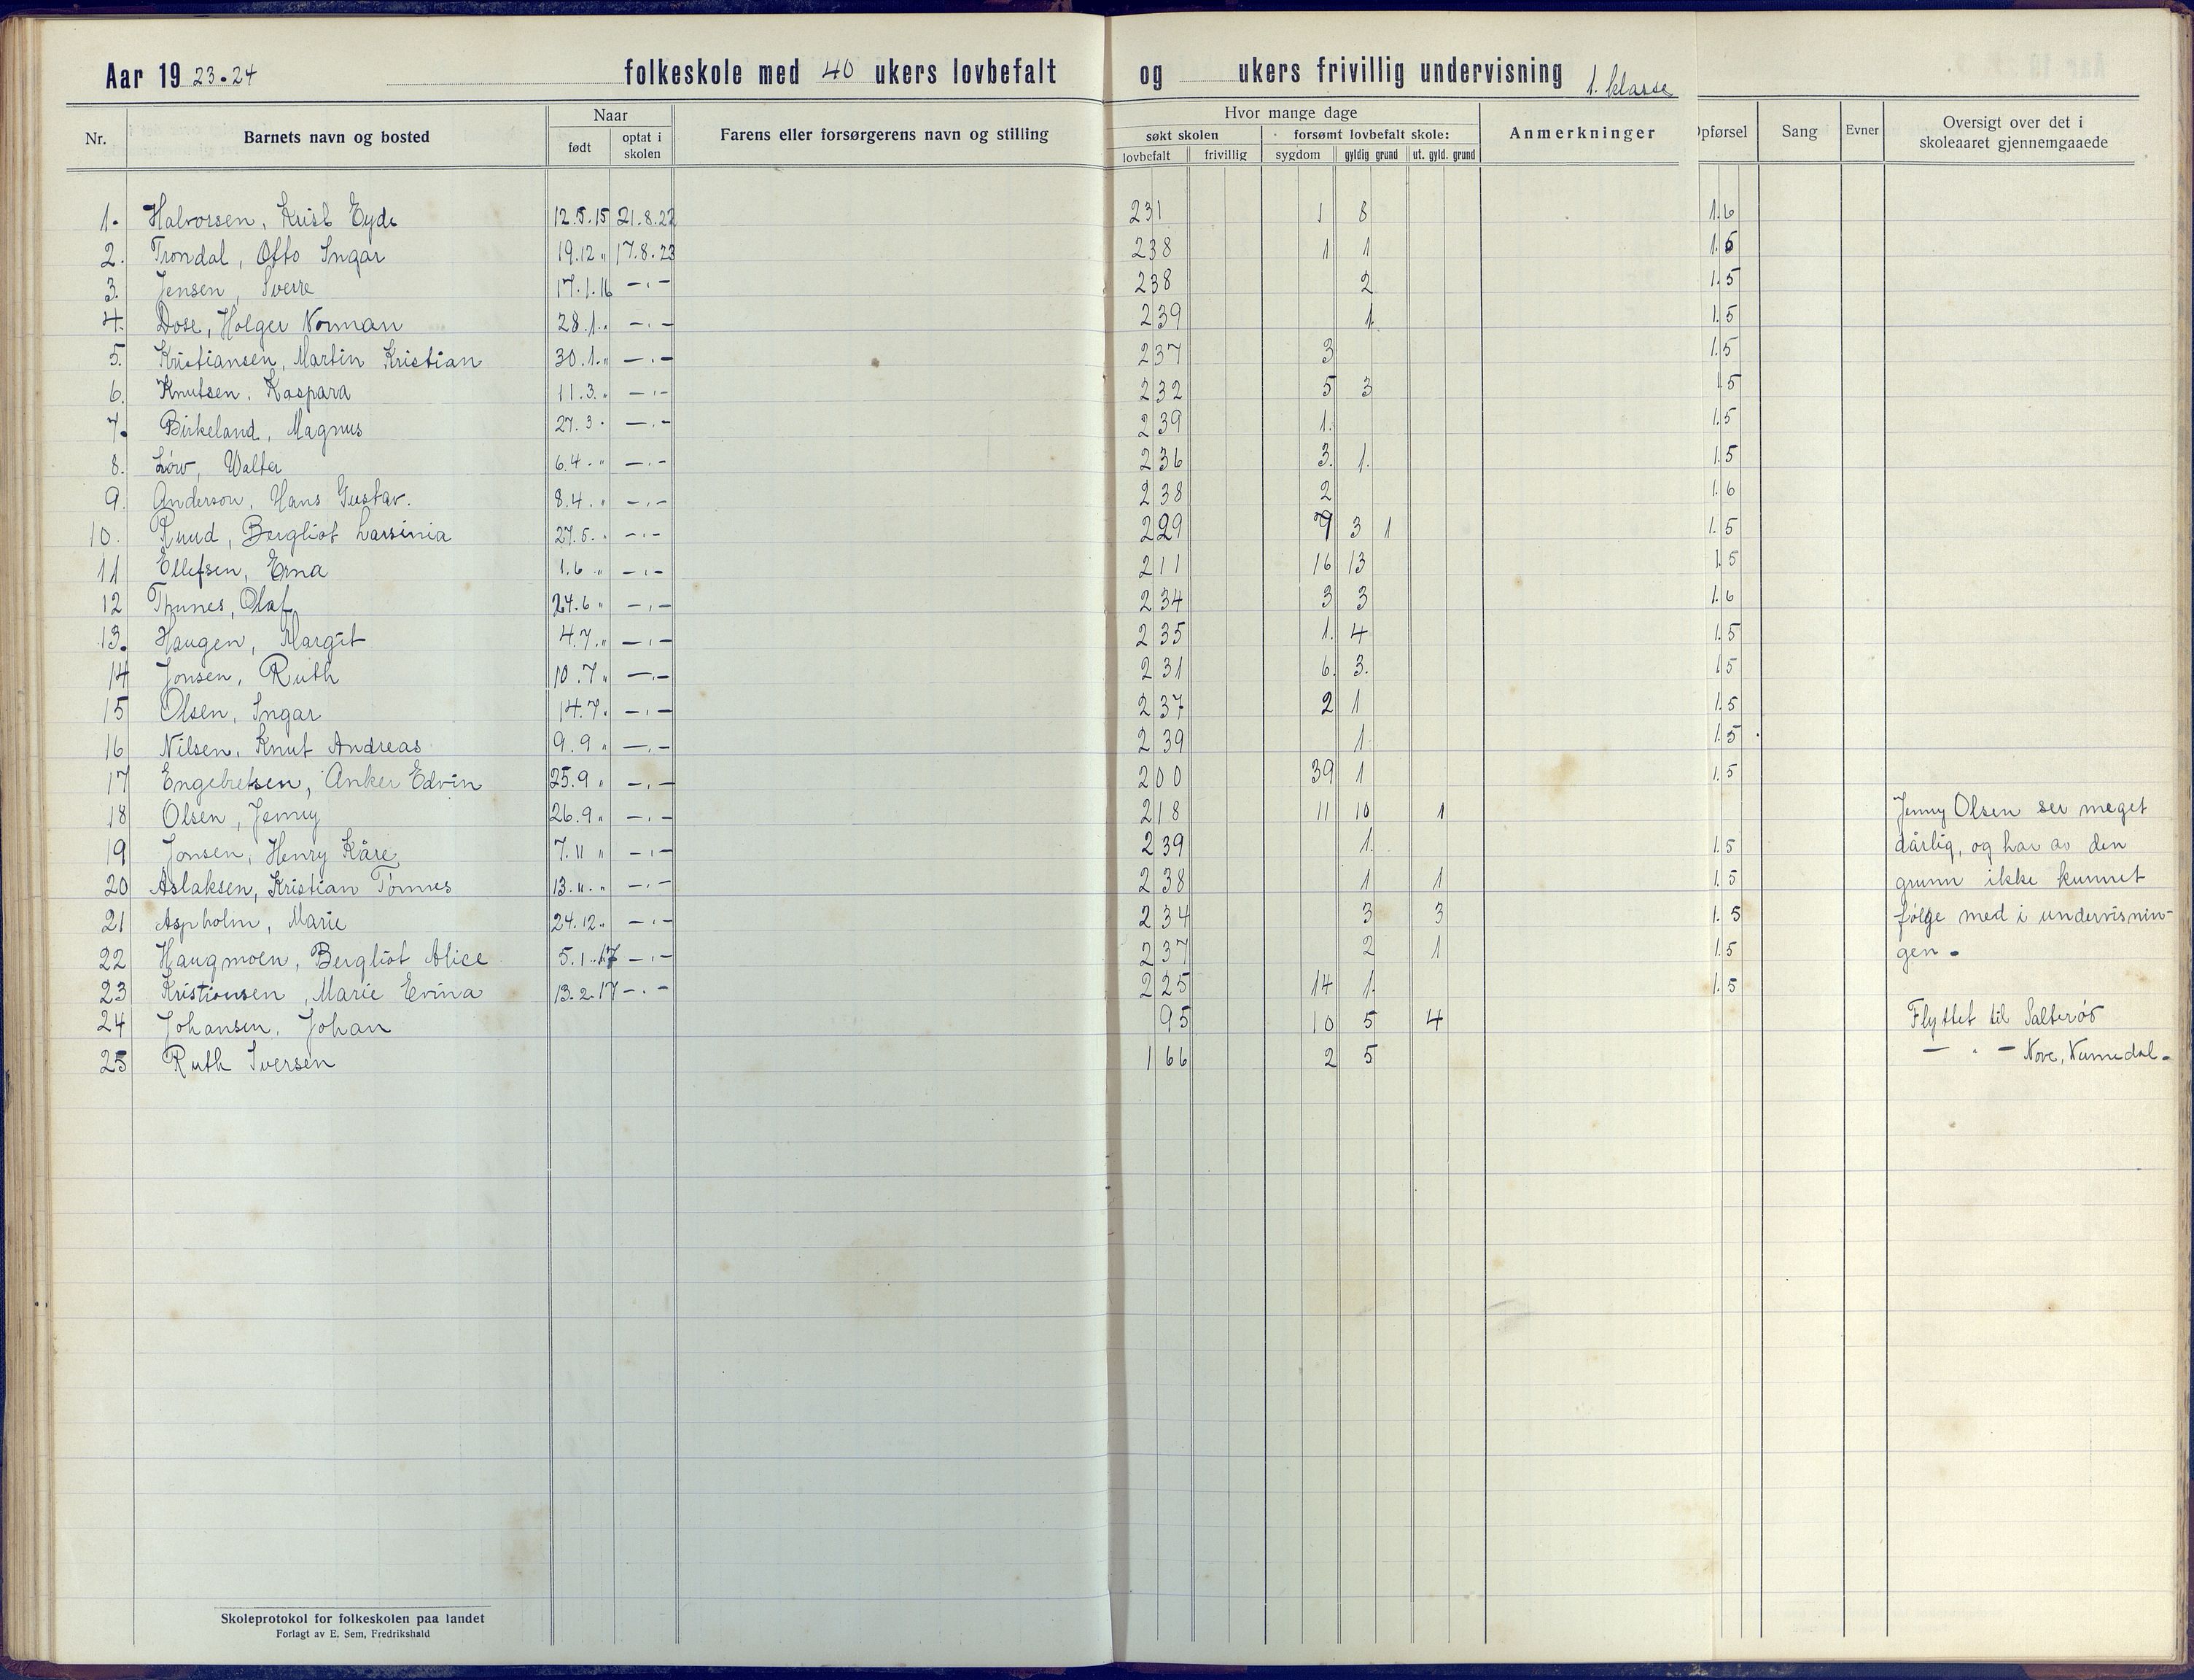 Aar 19 23-24 folkeskole med 40 ukers lovbefalt og ukers frivillig undervisning 1. klasse
Nr. Barnets navn og bosted Naar født optat i skolen Farens eller forsørgerens navn og stilling Hvor mange dage søkt skolen lovbefalt frivillig forsømt lovbefalt skole: sygdom gyldig grund ut. gyld. grund Anmerkninger Opførsel Sang Evner Oversigt over det i skoleaaret gjennemgaaede
1. Halvorsen, Krist Eyde 12.5.15 21.8.22 231 1 8 1.6
2. Trondal, Otto Ingar 19.12 " 17.8.23 238 1 1 1.5
3. Jensen, Sverre 17.1.16 — " — 238 2 1.5
4. Dose, Holger Norman 28.1. " — " — 239 1 1.5
5. Kristiansen, Martin Kristian 30.1. " — " — 237 3 1.5
6. Knutsen, Kaspara 11.3. " — " — 232 5 3 1.5
7. Birkeland, Magnus 27.3 " — " — 239 1. 1.5
8. Löw, Walter 6.4. " — " — 236 3. 1. 1.5
9. Anderson, Hans Gustav. 8.4. " — " — 238 2 1.6
10. Ruud, Bergliot Larsinia 27.5. " — " — 229 7 3 1 1.5
11 Ellefsen, Erna 1.6 " — " — 211 16 13 1.5
12 Thunes, Olaf 24.6 " — " — 234 3 3 1.6
13. Haugen, Margit 4.7. " — " — 235 1. 4 1.5
14 Jonsen, Ruth 10.7 " — " — 231 6. 3. 1.5
15 Olsen, Ingar 14.7. " — " — 237 2 1 1.5
16 Nilsen, Knut Andreas 9.9 " — " — 239 1 1.5
17 Engebretsen, Anker Edvin 25.9 " — " — 200 39 1 1.5
18 Olsen, Jenny 26.9 " — " — 218 11 10 1 Jenny Olsen ser meget
19 Jonsen, Henry Kåre 7.11 " — " — 239 1. 1.5 dårlig, og har av den
20 Aslaksen, Kristian Tønnes 13.11. " — " — 238 1 1 1.5 grunn ikke kunnet
21 Aspholm, Marie 24.12. " — " — 234 3 3 1.5 følge med i undervisnin-
22 Haugmoen, Bergliot Alice 5.1.17 — " — 237 2 1 1.5 gen.
23 Kristiansen, Marie Evina 13.2.17 — " — 225 14 1. 1.5
24 Johansen, Johan 95 10 5 4 Flyttet til Salterød
25 Ruth Iversen 166 2 5 — " — Nore, Numedal.
Skoleprotokol for folkeskolen paa landet
Forlagt av E. Sem, Fredrikshald